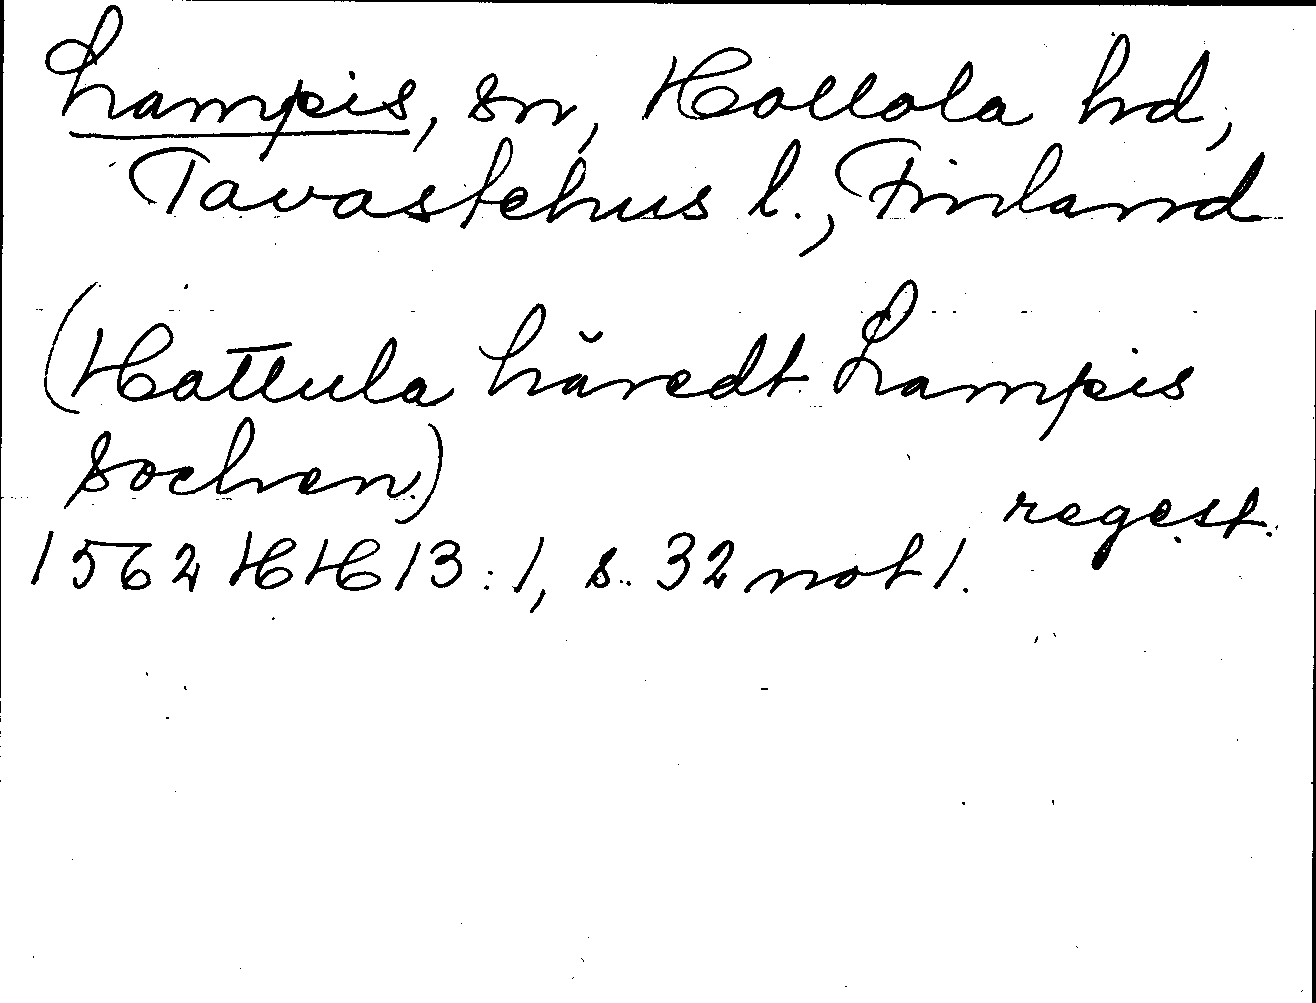 Lampis, sn, Hollola hd,
Tavastehus l., Finland
(Hattula häredt Lampis
Sochen)
regest.
1562 HH 13:1, s. 32 not 1.